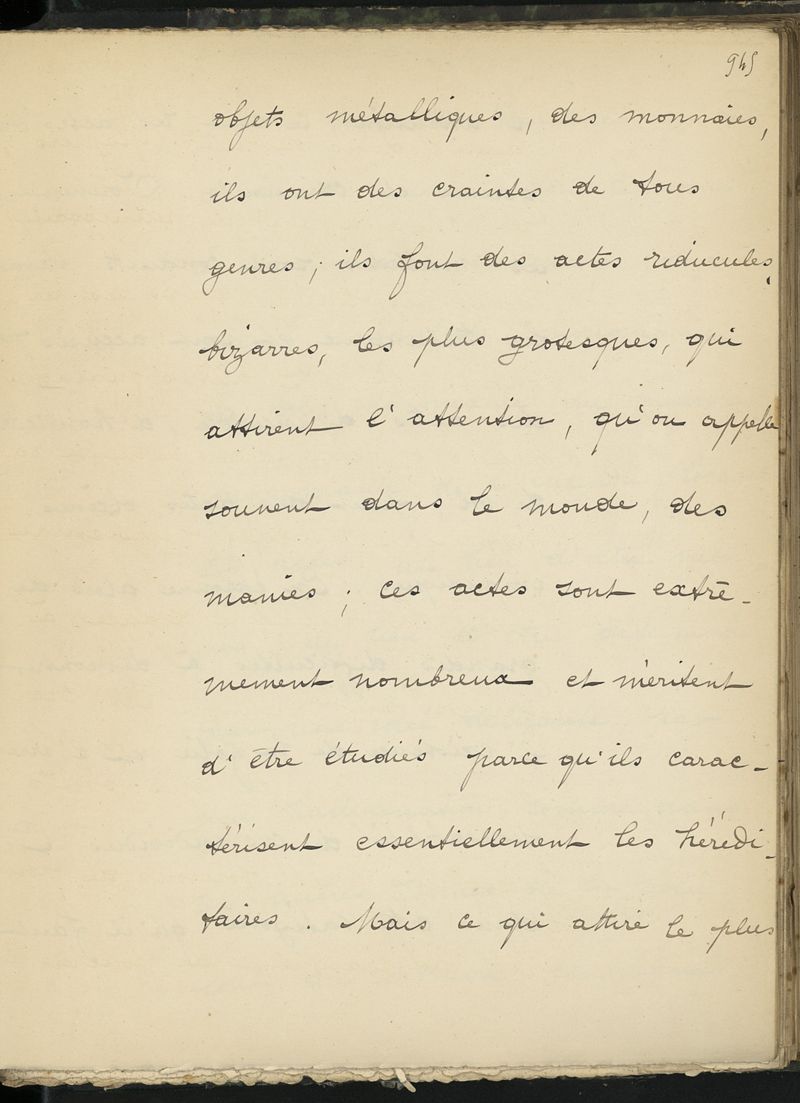 945
objets métalliques, des monnaies,
ils ont des craintes de tous
genres ; ils font des actes riducules,
bizarres, les plus grotesques, qui
attirent l'attention, qu'on appelle
souvent dans le monde, des
manies ; ces actes sont extrê-
mement nombreux et méritent
d'être étudiés parce qu'ils carac-
térisent essentiellement les hérédi-
taires. Mais ce qui attire le plus